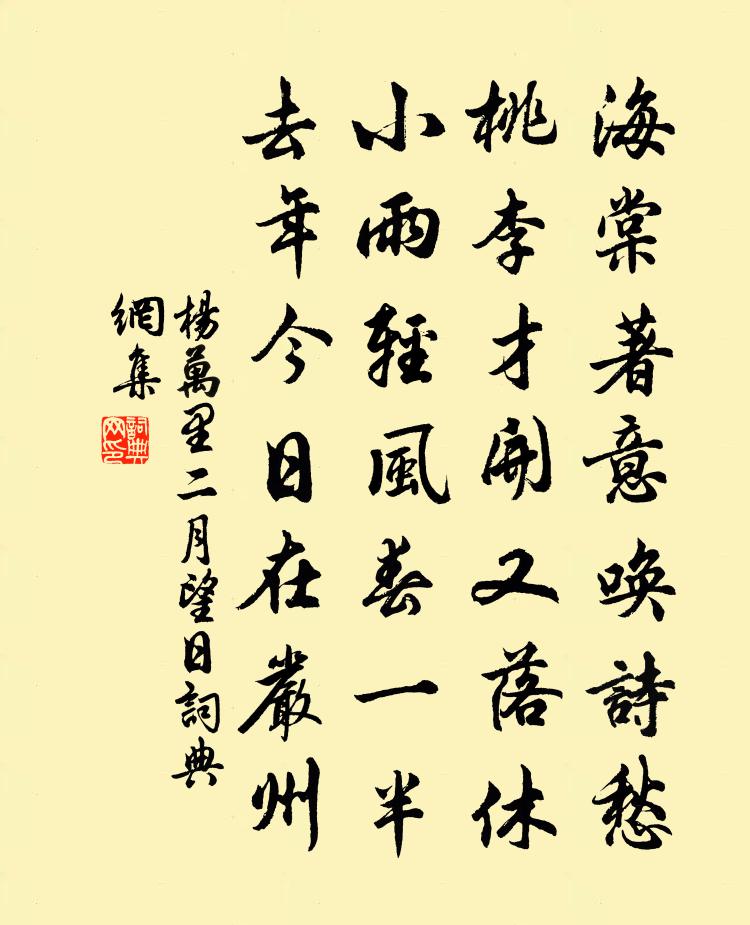 海棠著意喚詩愁
桃李才開又落休
小雨輕風春一半
去年今日在嚴州
楊萬里二月望日詞典
網集
詞典
网印